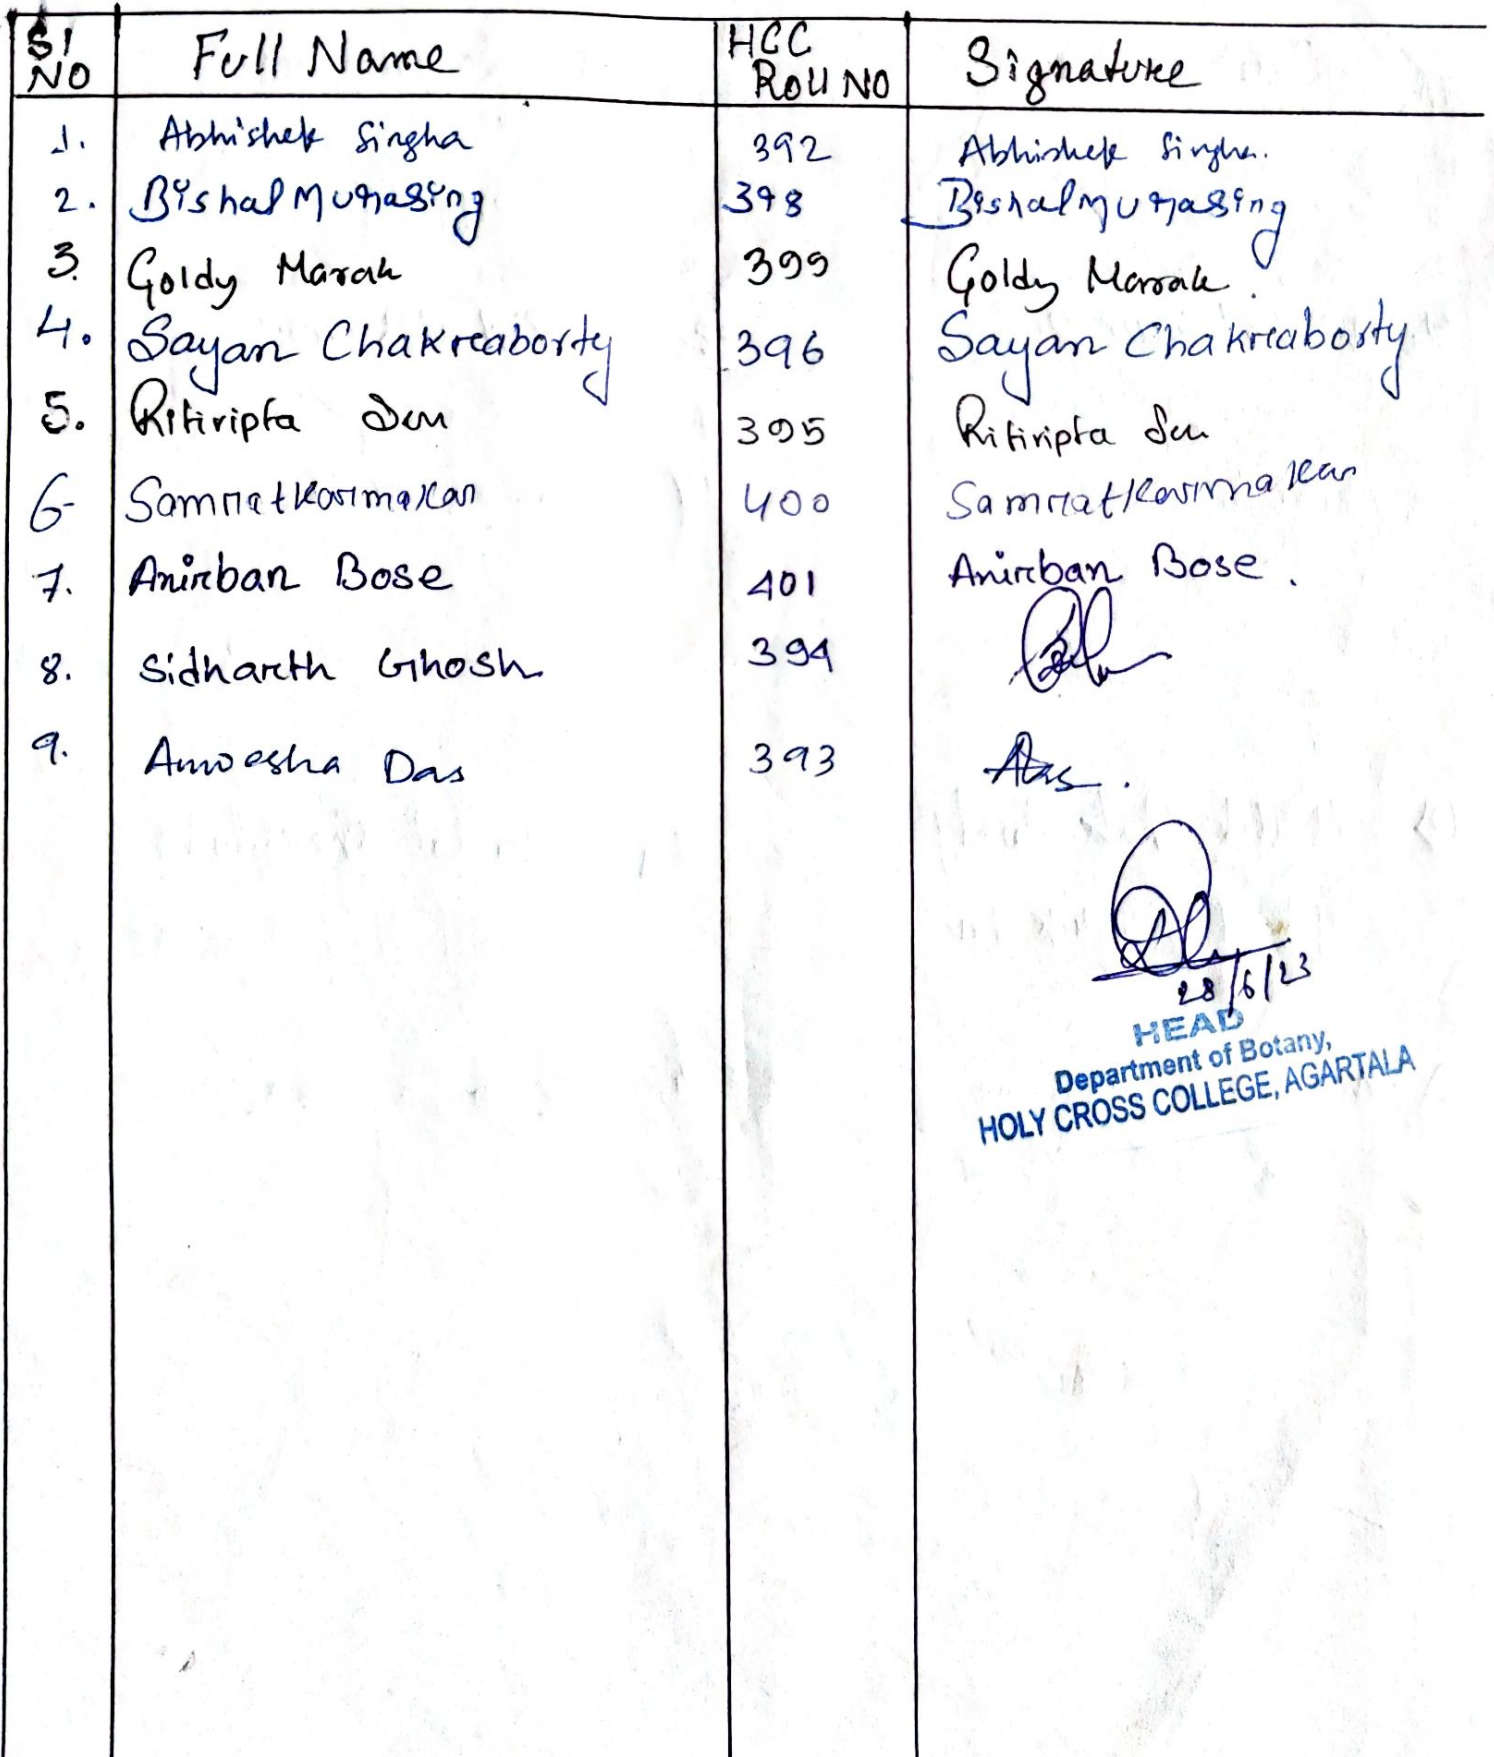 Sl NO Full Name HCC Roll NO Signature
1. Abhishek Singha 392 Abhishek Singha.
2. Bishal Murasing 398 Bishal Murasing
3. Goldy Marak 399 Goldy Marak.
4. Sayan Chakraborty 396 Sayan Chakraborty
5. Ritiripta Sen 395 Ritiripta Sen
6 Samrat Karmakar 400 Samrat Karmakar
7. Anirban Bose 401 Anirban Bose.
8. Sidharth Ghosh 394
9. Das 393
28/6/23
HEAD
Department of Botany,
HOLY CROSS COLLEGE, AGARTALA